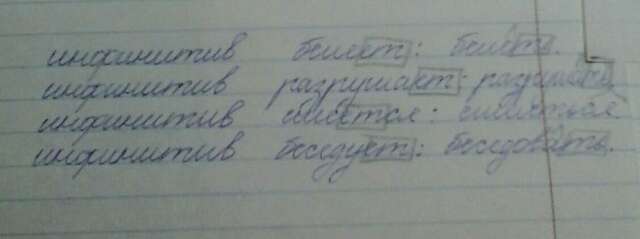 инфинитив белеет: белеть.
инфинитив разрушает: разрушать
инфинитив смеется: смеяться
инфинитив беседует: беседовать.